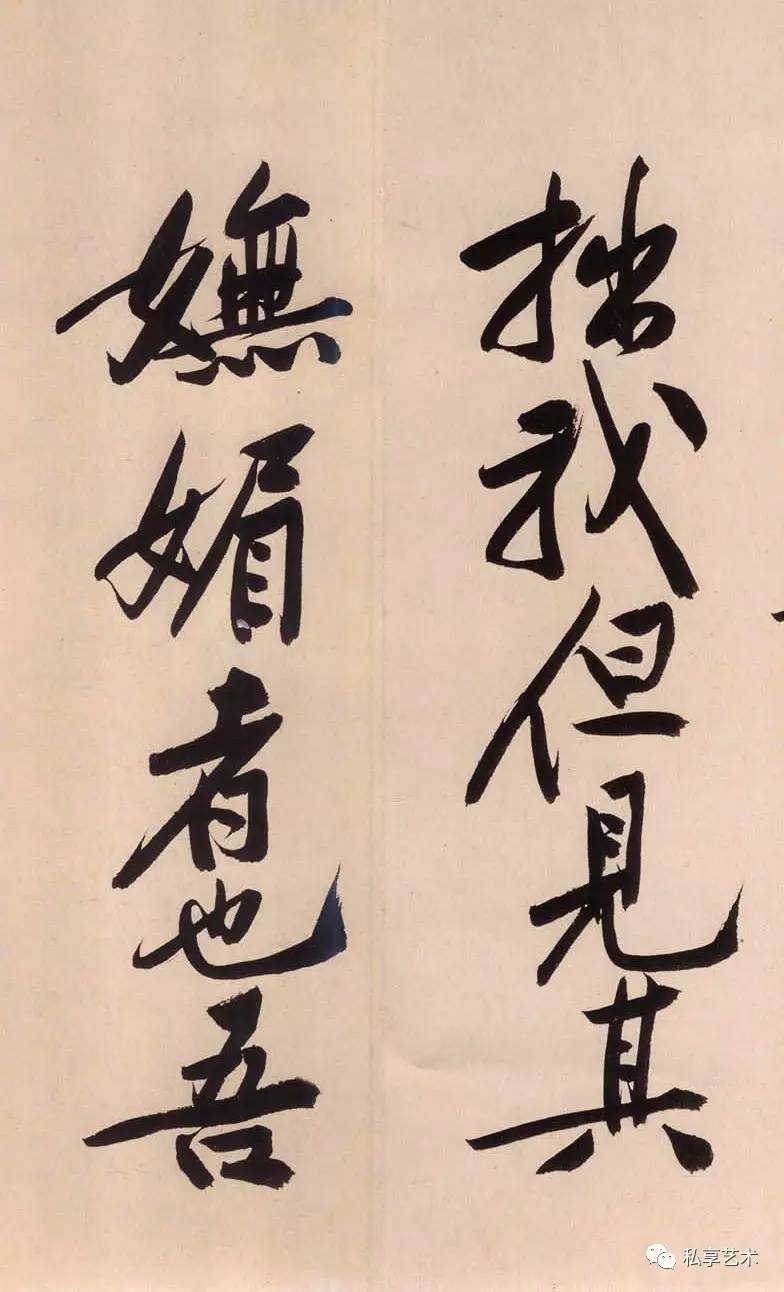 拙我但見其
嫵媚者也吾
私享艺术